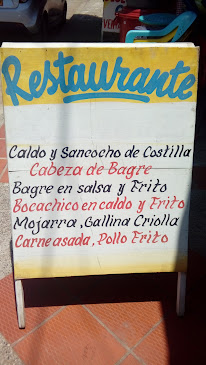 Restaurante
Caldo y Sancocho de Costilla
Cabeza de Bagre
Bagre en salsa y Frito
Bocachico en caldo y Frito
Mojarra, Gallina Criolla
Carne asada, Pollo Frito